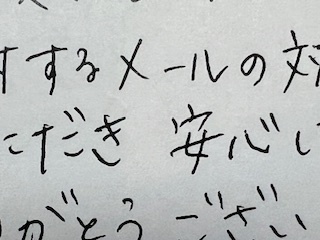 するメールの対
ただき 安心し
がとうござい